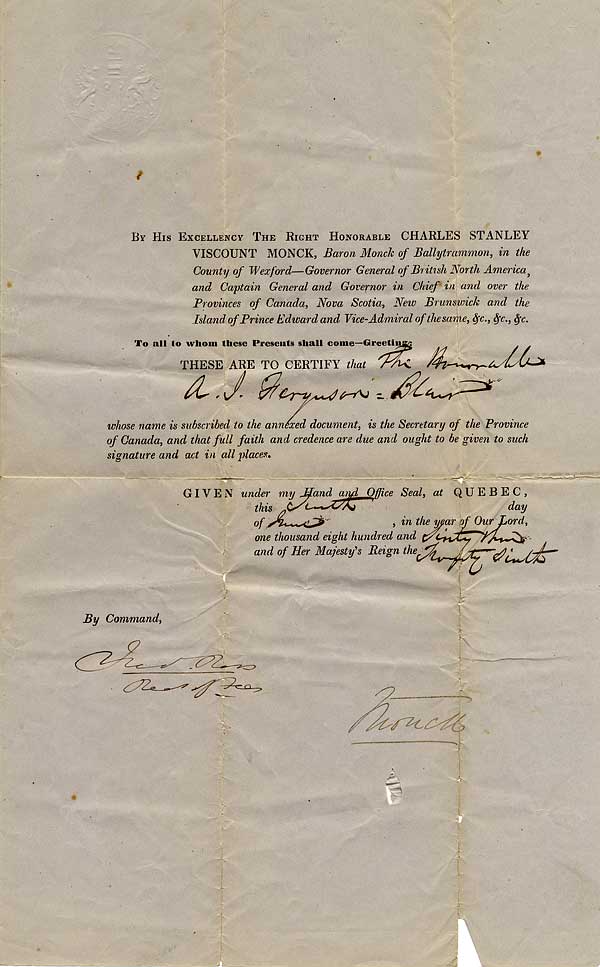 BY HIS EXCELLENCY THE RIGHT HONORABLE CHARLES STANLEY
VISCOUNT MONCK, Baron Monck of Ballytrammon, in the
County of Wexford—Governor General of British North America,
and Captain General and Governor in Chief in and over the
Provinces of Canada, Nova Scotia, New Brunswick and the
Island of Prince Edward and Vice-Admiral of the same, &c., &c., &c.
To all to whom these Presents shall come—Greeting:
THESE ARE TO CERTIFY that The Honorable
A. J. Ferguson=Blair
whose name is subscribed to the annexed document, is the Secretary of the Province
of Canada, and that full faith and credence are due and ought to be given to such
signature and act in all places.
GIVEN under my Hand and Office Seal, at QUEBEC,
this day
of June, in the year of Our Lord,
one thousand eight hundred and Sixty three
and of Her Majesty's Reign the Twenty Sixth
By Command,
Monck